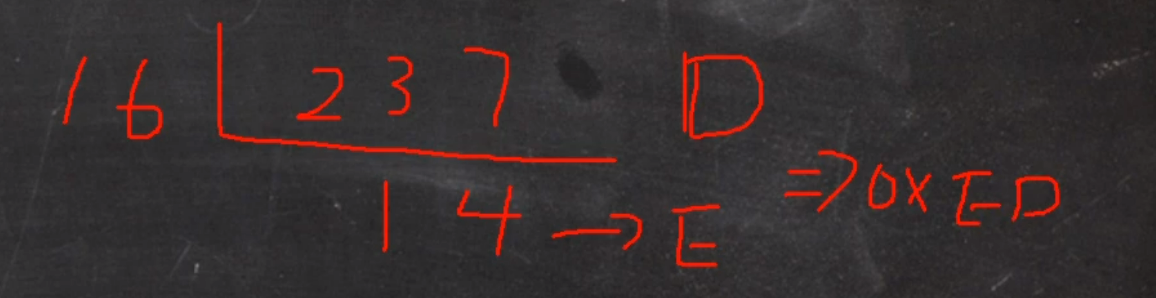 16 237 D
14 → E ⇒ 0x ED